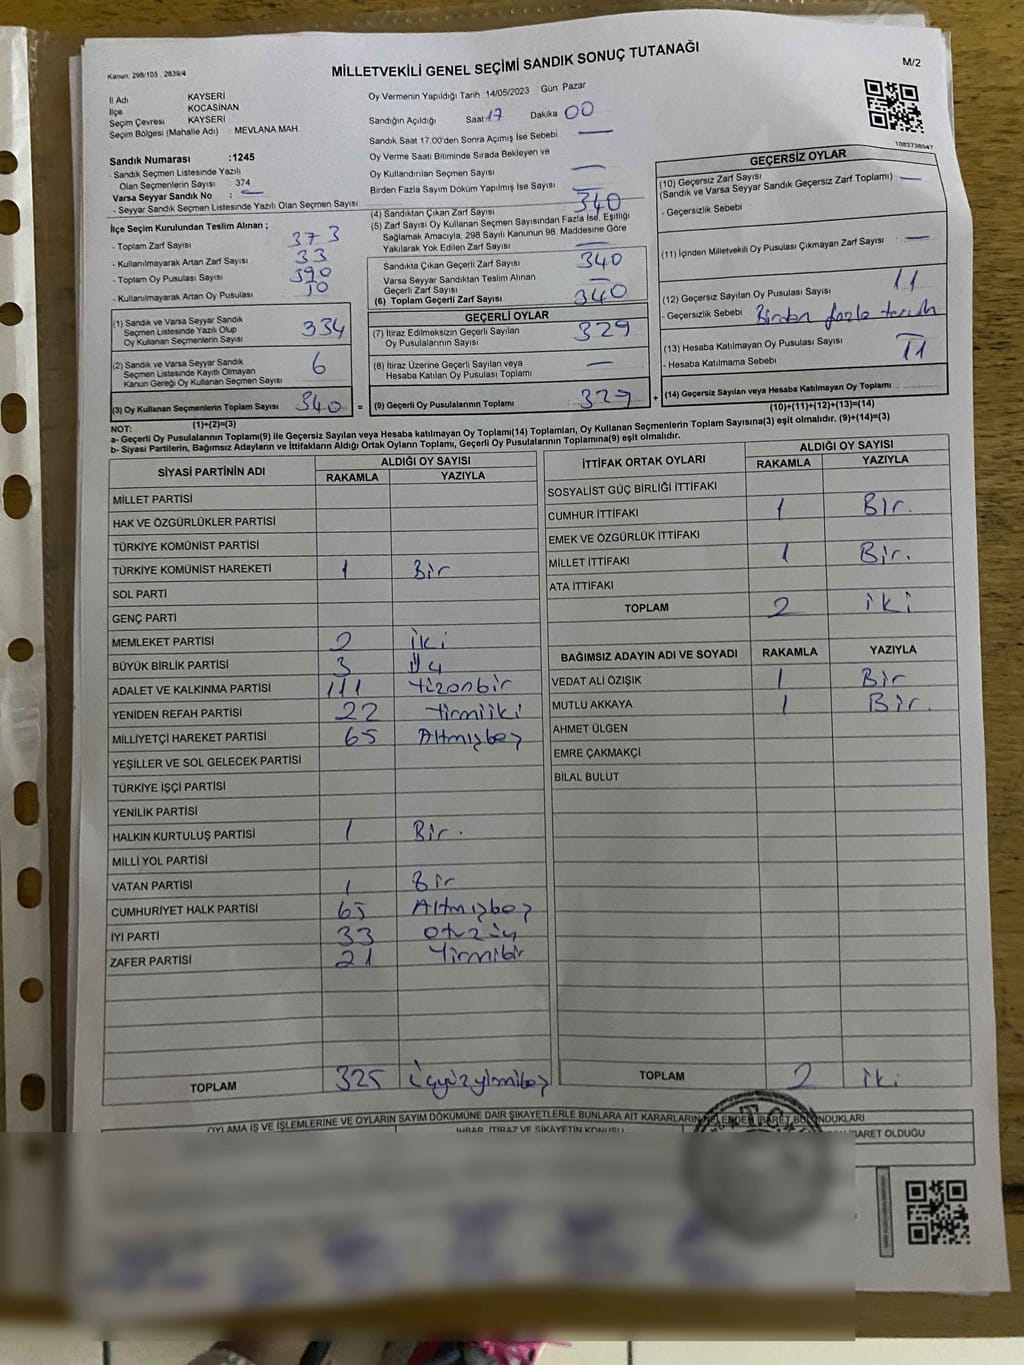 Kanun: 298/105 , 2839/4
MİLLETVEKİLİ GENEL SEÇİMİ SANDIK SONUÇ TUTANAĞI
M/2
İl Adı KAYSERİ
İlçe KOCASİNAN
Seçim Çevresi KAYSERİ
Seçim Bölgesi (Mahalle Adı) : MEVLANA MAH
Sandık Numarası :1245
- Sandık Seçmen Listesinde Yazılı
Olan Seçmenlerin Sayısı : 374
Varsa Seyyar Sandık No : —
- Seyyar Sandık Seçmen Listesinde Yazılı Olan Seçmen Sayısı
Oy Vermenin Yapıldığı Tarih 14/05/2023 Gün Pazar
Sandığın Açıldığı Saat 17 Dakika 00
Sandık Saat 17:00'den Sonra Açımış İse Sebebi —
Oy Verme Saati Bitiminde Sırada Bekleyen ve
Oy Kullandırılan Seçmen Sayısı —
Birden Fazla Sayım Döküm Yapılmış İse Sayısı —
1083738047
İlçe Seçim Kurulundan Teslim Alınan ;
- Toplam Zarf Sayısı 373
- Kullanılmayarak Artan Zarf Sayısı 33
- Toplam Oy Pusulası Sayısı 390
- Kullanılmayarak Artan Oy Pusulası
(1) Sandık ve Varsa Seyyar Sandık
Seçmen Listesinde Yazılı Olup
Oy Kullanan Seçmenlerin Sayısı 334
(2) Sandık ve Varsa Seyyar Sandık
Seçmen Listesinde Kayıtlı Olmayan
Kanun Gereği Oy Kullanan Seçmen Sayısı 6
(3) Oy Kullanan Seçmenlerin Toplam Sayısı 340 =
(1)+(2)=(3)
(4) Sandıktan Çıkan Zarf Sayısı 340
(5) Zarf Sayısı Oy Kullanan Seçmen Sayısından Fazla İse, Eşitliği
Sağlamak Amacıyla, 298 Sayılı Kanunun 98. Maddesine Göre
Yakılarak Yok Edilen Zarf Sayısı —
Sandıkta Çıkan Geçerli Zarf Sayısı 340
Varsa Seyyar Sandıktan Teslim Alınan
Geçerli Zarf Sayısı —
(6) Toplam Geçerli Zarf Sayısı 340
GEÇERLİ OYLAR
(7) İtiraz Edilmeksizin Geçerli Sayılan
Oy Pusulalarının Sayısı 329
(8) İtiraz Üzerine Geçerli Sayılan veya
Hesaba Katılan Oy Pusulası Toplamı —
(9) Geçerli Oy Pusulalarının Toplamı 329 +
GEÇERSİZ OYLAR
(10) Geçersiz Zarf Sayısı
(Sandık ve Varsa Seyyar Sandık Geçersiz Zarf Toplamı) —
- Geçersizlik Sebebi
(11) İçinden Milletvekili Oy Pusulası Çıkmayan Zarf Sayısı —
(12) Geçersiz Sayılan Oy Pusulası Sayısı 11
- Geçersizlik Sebebi Birden fazla tercih
(13) Hesaba Katılmayan Oy Pusulası Sayısı 11
- Hesaba Katılmama Sebebi
(14) Geçersiz Sayılan veya Hesaba Katılmayan Oy Toplamı
(10)+(11)+(12)+(13)=(14)
NOT:
a- Geçerli Oy Pusulalarının Toplamı(9) ile Geçersiz Sayılan veya Hesaba katılmayan Oy Toplamı(14) Toplamları, Oy Kullanan Seçmenlerin Toplam Sayısına(3) eşit olmalıdır. (9)+(14)=(3)
b- Siyasi Partilerin, Bağımsız Adayların ve İttifakların Aldığı Ortak Oyların Toplamı, Geçerli Oy Pusulalarının Toplamına(9) eşit olmalıdır.
SİYASİ PARTİNİN ADI ALDIĞI OY SAYISI
RAKAMLA YAZIYLA
MİLLET PARTİSİ
HAK VE ÖZGÜRLÜKLER PARTİSİ
TÜRKİYE KOMÜNİST PARTİSİ
TÜRKİYE KOMÜNİST HAREKETİ 1 Bir
SOL PARTİ
GENÇ PARTİ
MEMLEKET PARTİSİ 2 İki
BÜYÜK BİRLİK PARTİSİ 3 Üç
ADALET VE KALKINMA PARTİSİ 111 Yüzonbir
YENİDEN REFAH PARTİSİ 22 Yirmiiki
MİLLİYETÇİ HAREKET PARTİSİ 65 Altmışbeş
YEŞİLLER VE SOL GELECEK PARTİSİ
TÜRKİYE İŞÇİ PARTİSİ
YENİLİK PARTİSİ
HALKIN KURTULUŞ PARTİSİ 1 Bir.
MİLLİ YOL PARTİSİ
VATAN PARTİSİ 1 Bir
CUMHURİYET HALK PARTİSİ 65 Altmışbeş
İYİ PARTİ 33 Otuzüç
ZAFER PARTİSİ 21 Yirmibir
TOPLAM 325 üçyüzyirmibeş
İTTİFAK ORTAK OYLARI ALDIĞI OY SAYISI
RAKAMLA YAZIYLA
SOSYALİST GÜÇ BİRLİĞİ İTTİFAKI
CUMHUR İTTİFAKI 1 Bir.
EMEK VE ÖZGÜRLÜK İTTİFAKI
MİLLET İTTİFAKI 1 Bir.
ATA İTTİFAKI
TOPLAM 2 iki
BAĞIMSIZ ADAYIN ADI VE SOYADI RAKAMLA YAZIYLA
VEDAT ALİ ÖZIŞIK 1 Bir
MUTLU AKKAYA 1 Bir.
AHMET ÜLGEN
EMRE ÇAKMAKÇİ
BİLAL BULUT
TOPLAM 2 iki
OYLAMA İŞ VE İŞLEMLERİNE VE OYLARIN SAYIM DÖKÜMÜNE DAİR ŞİKAYETLERLE BUNLARA AİT KARARLARIN NELERDEN İBARET BULUNDUKLARI
İHBAR, İTİRAZ VE ŞİKAYETİN KONUSU